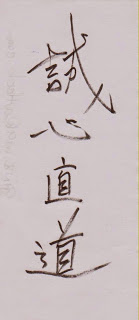 誠心直道